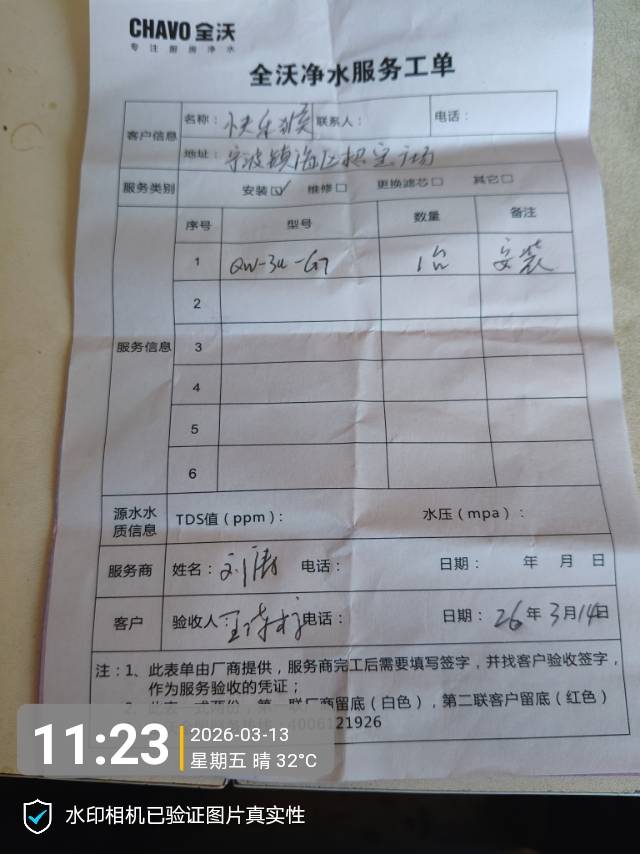 CHAVO 全沃
专注厨房净水
全沃净水服务工单
客户信息 名称：快乐猴 联系人： 电话：
地址：宁波镇海区招宝广场
服务类别 安装☑ 维修□ 更换滤芯□ 其它□
服务信息 序号 型号 数量 备注
1 QW-3u-G7 1台 安装
2
3
4
5
6
源水水质信息 TDS值（ppm）： 水压（mpa）：
服务商 姓名：刘涛 电话： 日期： 年 月 日
客户 验收人 电话： 日期：26年3月14日
注：1、此表单由厂商提供，服务商完工后需要填写签字，并找客户验收签字，
作为服务验收的凭证；
联厂商留底（白色），第二联客户留底（红色）
4006121926
11:23 2026-03-13
星期五 晴 32°C
水印相机已验证图片真实性